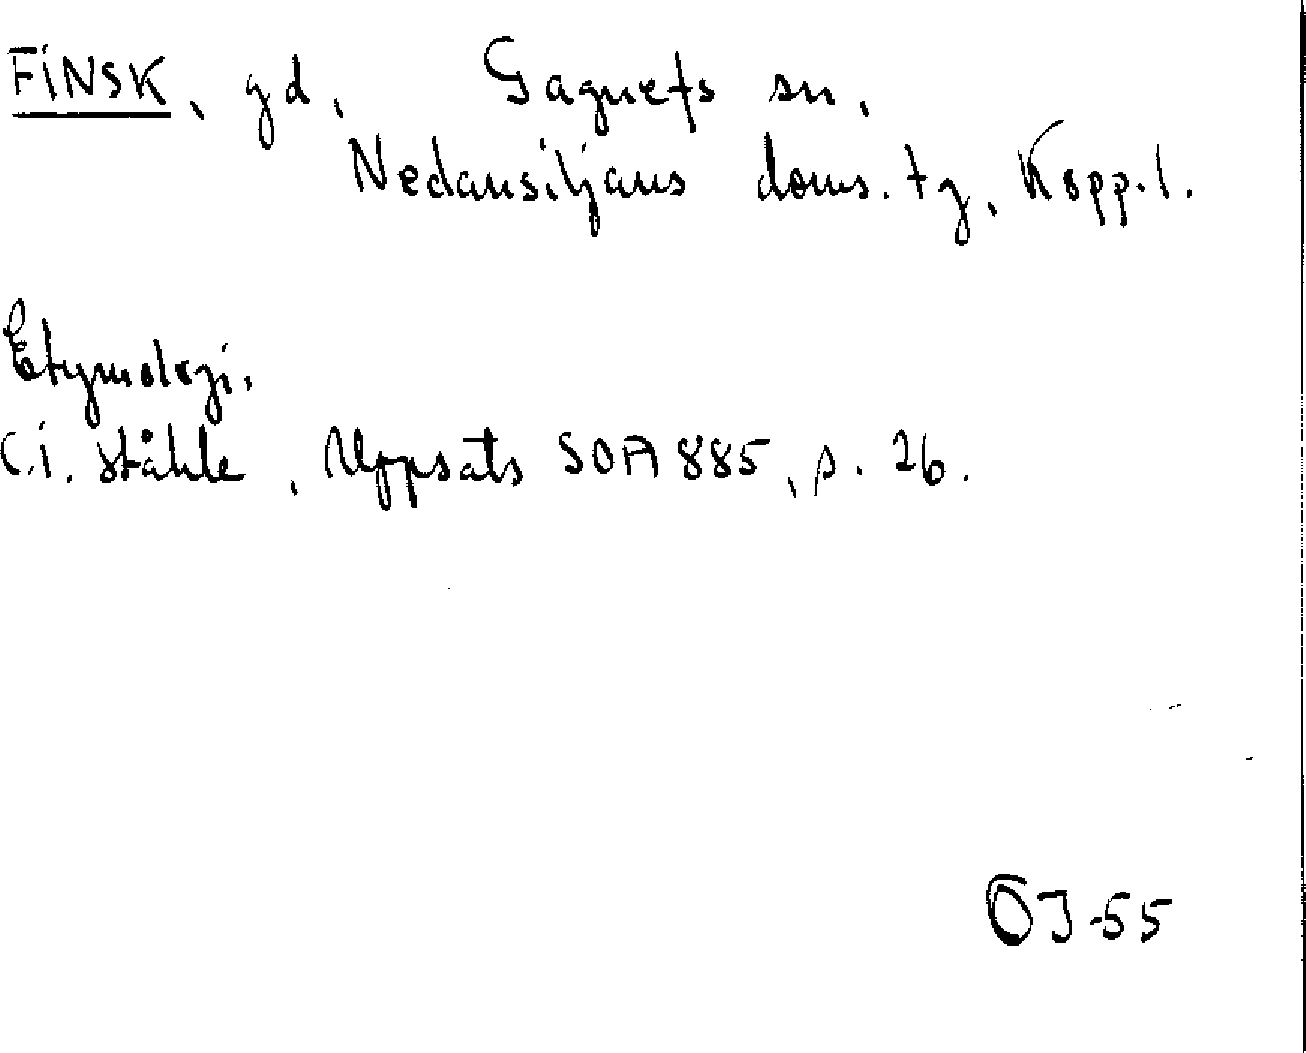 FINSK, gd, Gagnefs sn,
Nedansiljans doms. tg, Kopp. l.
Etymologi.
C.I. Ståhle, Uppsats SOA 885, s. 26.
ÖJ-55